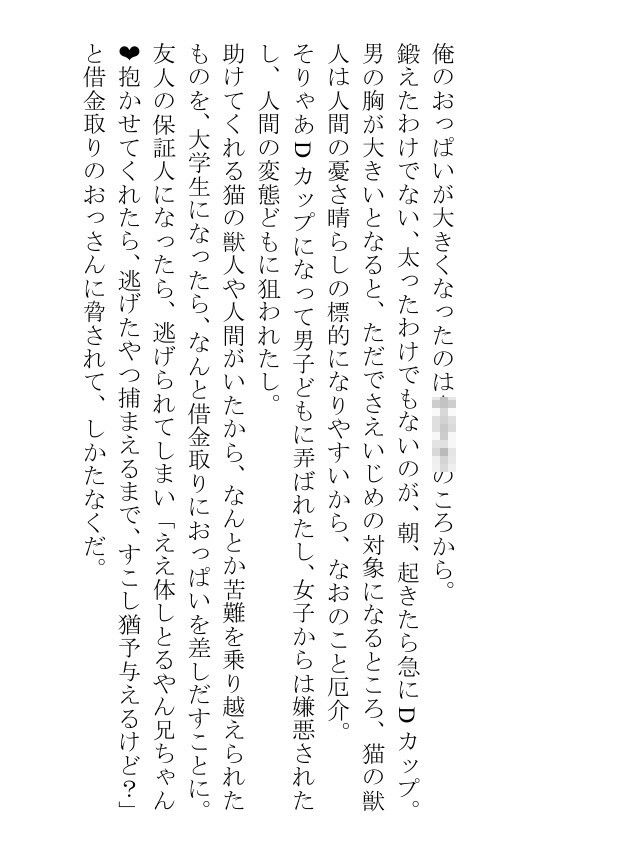 俺のおっぱいが大きくなったのはのころから。
鍛えたわけでない、太ったわけでもないのが、朝、起きたら急にDカップ。
男の胸が大きいとなると、ただでさえいじめの対象になるところ、猫の獣
人は人間の憂さ晴らしの標的になりやすいから、なおのこと厄介。
そりゃあDカップになって男子どもに弄ばれたし、女子からは嫌悪された
し、人間の変態どもに狙われたし。
助けてくれる猫の獣人や人間がいたから、なんとか苦難を乗り越えられた
ものを、大学生になったら、なんと借金取りにおっぱいを差しだすことに。
友人の保証人になったら、逃げられてしまい「ええ体しとるやん兄ちゃん
❤抱かせてくれたら、逃げたやつ捕まえるまで、すこし猶予与えるけど？」
と借金取りのおっさんに脅されて、しかたなくだ。